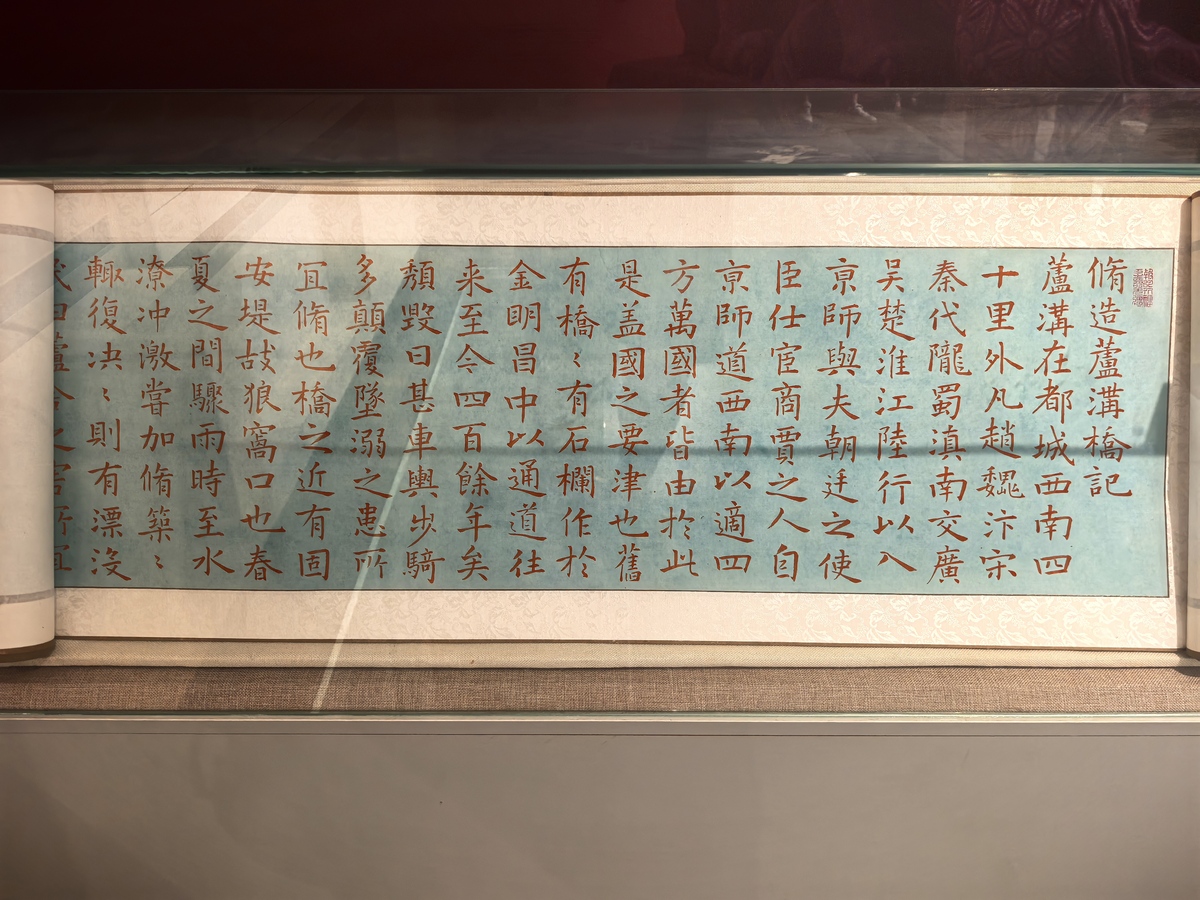 脩造蘆溝橋記
蘆溝在都城西南四
十里外凡趙魏汴宋
秦代隴蜀滇南交廣
吴楚淮江陸行以入
亰師與夫朝廷之使
臣仕宦商賈之人自
亰師道西南以適四
方萬國者皆由於此
是盖國之要津也舊
有橋〻有石欄作於
金明昌中以通道往
来至今四百餘年矣
頽毀日甚車輿步騎
多顛覆墜溺之患所
冝脩也橋之近有固
安堤故狼窩口也春
夏之間驟雨時至水
潦冲激嘗加脩築〻
輙復决〻則有漂沒